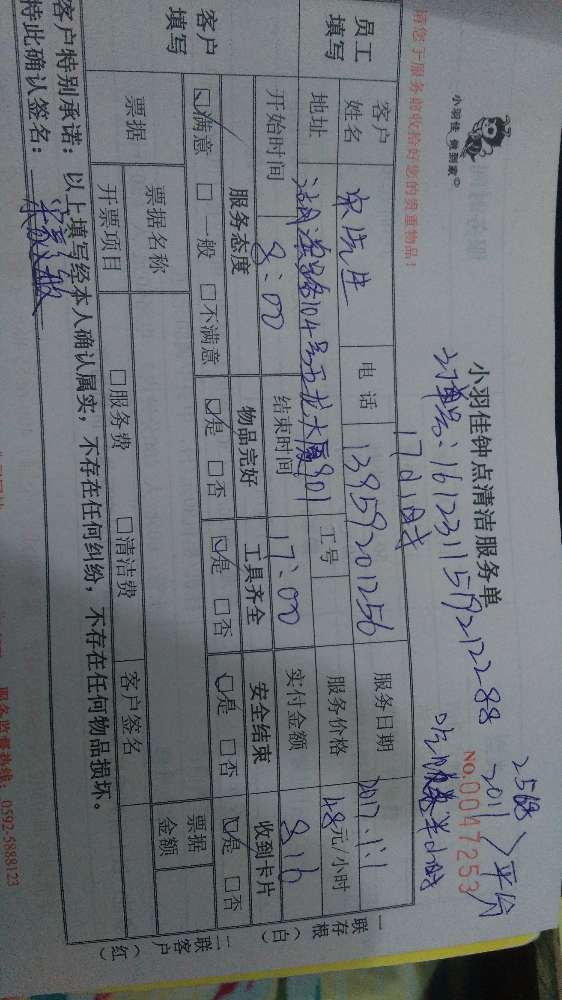 小羽佳 做到家
小羽佳钟点清洁服务单
订单号：1612311519212288
2568
2011 平分
NO.0047253
请您于服务前收拾好您的贵重物品！
17小时
吃晚餐半小时
员工填写
客户姓名 宋先生 电话 13959201256 服务日期 2017.1.1
地址 104号五龙大厦901 工号 服务价格 48元/小时
开始时间 8:00 结束时间 17:00 实付金额 816
客户填写
服务态度 物品完好 工具齐全 安全结束 收到卡片
☑满意 □一般 □不满意 ☑是 □否 ☑是 □否 ☑是 □否 ☑是 □否
票据 票据名称 票据金额
开票项目 □服务费 □清洁费 客户签名
客户特别承诺：以上填写经本人确认属实，不存在任何纠纷，不存在任何物品损坏。
特此确认签名：
服务监督热线：0592-5888123
一联存根（白）
二联客户（红）